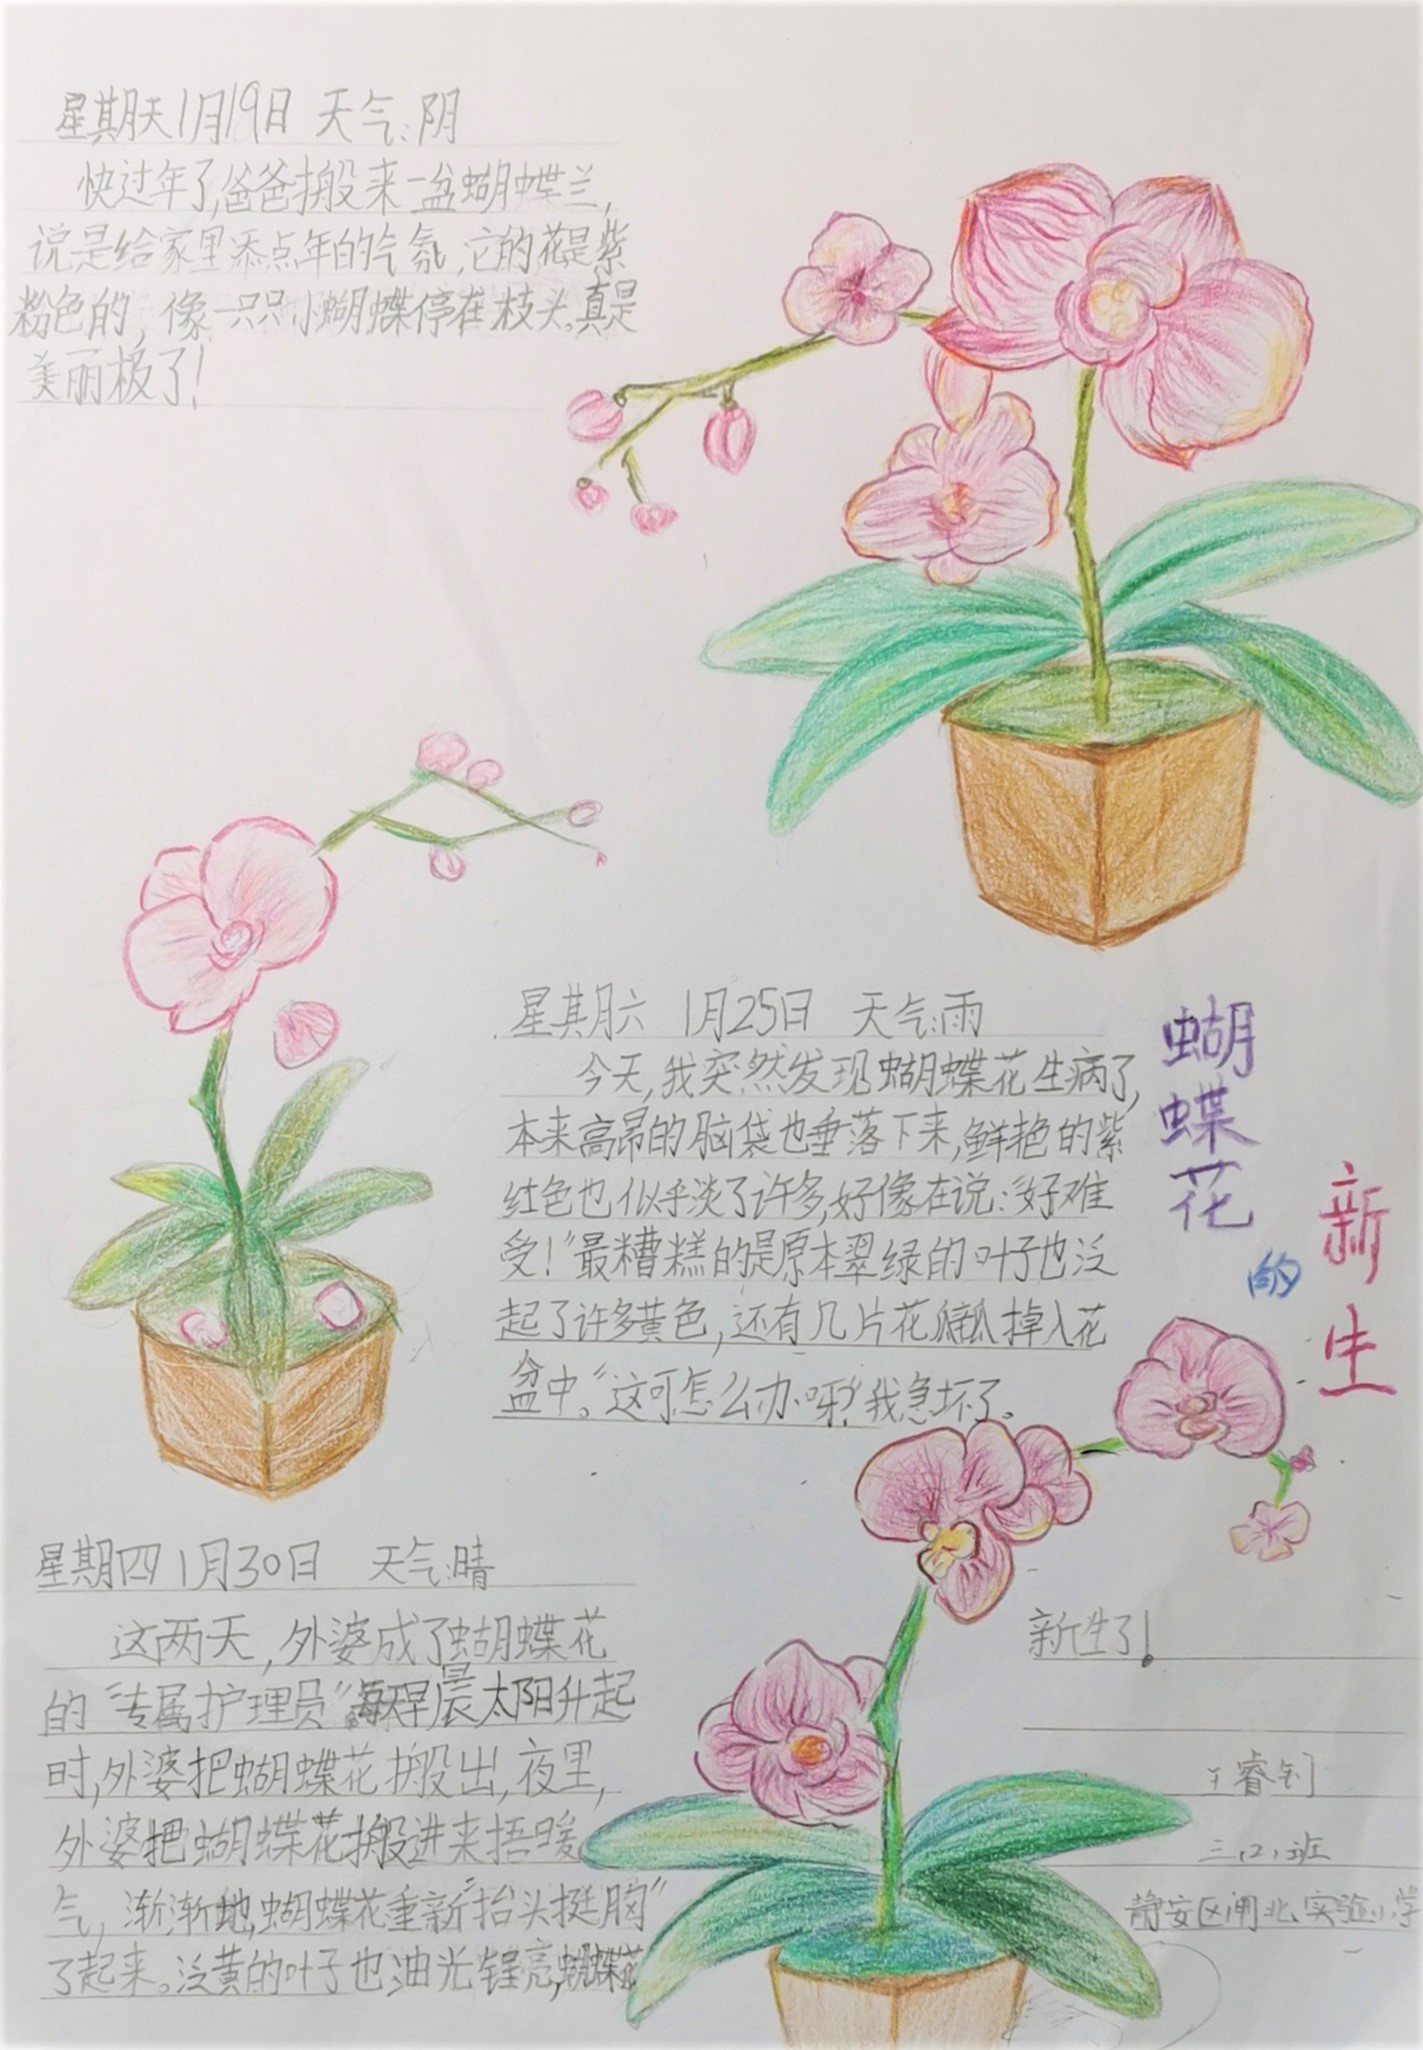 星期天1月19日 天气:阴
快过年了,爸爸搬来一盆蝴蝶兰,
说是给家里添点年的气氛,它的花是紫
粉色的,像一只只小蝴蝶停在枝头,真是
美丽极了!
星期六 1月25日 天气:雨
今天,我突然发现蝴蝶花生病了,
本来高昂的脑袋也垂落下来,鲜艳的紫
红色也似乎淡了许多,好像在说:“好难
受!”最糟糕的是原本翠绿的叶子也泛
起了许多黄色,还有几片花瓣掉入花
盆中。“这可怎么办呀?”我急坏了。
蝴蝶花
的
新生
星期四 1月30日 天气:晴
这两天,外婆成了蝴蝶花
的“专属护理员”每天早晨太阳升起
时,外婆把蝴蝶花搬出,夜里,
外婆把蝴蝶花搬进来捂暖
气,渐渐地,蝴蝶花重新“抬头挺胸”
了起来。泛黄的叶子也油光锃亮,蝴蝶花
新生了!
王睿钊
三(2)班
静安区闸北实验小学